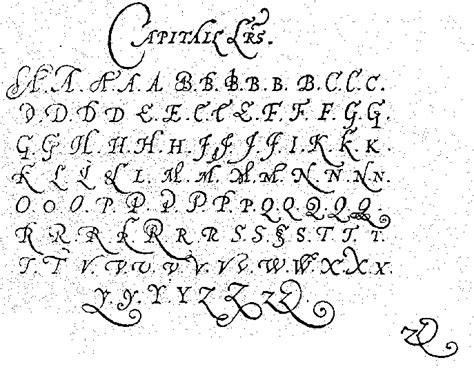 CAPITALL Lrs.
A. A. A. A. A B. B. B. B. B. B. C. C. C.
D. D. D. D E. E. E. E. E. F. F. G. G.
G. G H. H. H. H. J. J. J. J. I. K. K. K.
K L L L L. M. M. M. M. N. N. N. N.
O O O. P. P. P. P. P. P. Q. Q. Q. Q.
R. R. R. R R. R. R S. S. S. S. T. T. T.
T. T V. V. V. V. V. V. W. W. X. X. X.
Y. Y. Y Y Z Z. Z Z
Z